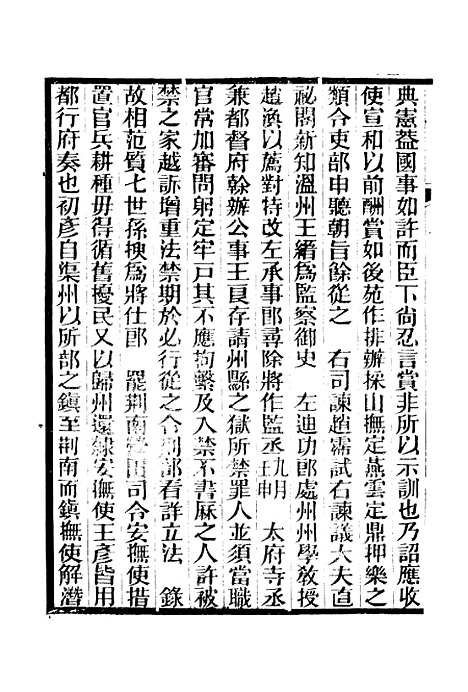 典憲蓋國事如許而臣下尚忍言賞非所以示訓也乃詔應收
使宣和以前酬賞如後苑作排辦採山撫定燕雲定鼎押樂之
類合吏部申聽朝旨餘從之　右司諫趙霈試右諫議大夫直
祕閣新知溫州王縉爲監察御史　左迪功郎處州州學敎授
趙渙以薦對特改左承事郎尋除將作監丞九月壬申　太府寺丞
兼都督府幹辦公事王良存請州縣之獄所禁罪人並須當職
官常加審問躬定牢戸其不應拘繫及入禁不書厤之人許被
禁之家越訴增重法禁期於必行從之令刑部看詳立法　錄
故相范質七世孫揉爲將仕郎　罷荆南營田司令安撫使措
置官兵耕種毋得循舊擾民又以歸州還隸安撫使王彥皆用
都行府奏也初彥自渠州以所部之鎭至荆南而鎭撫使解潛